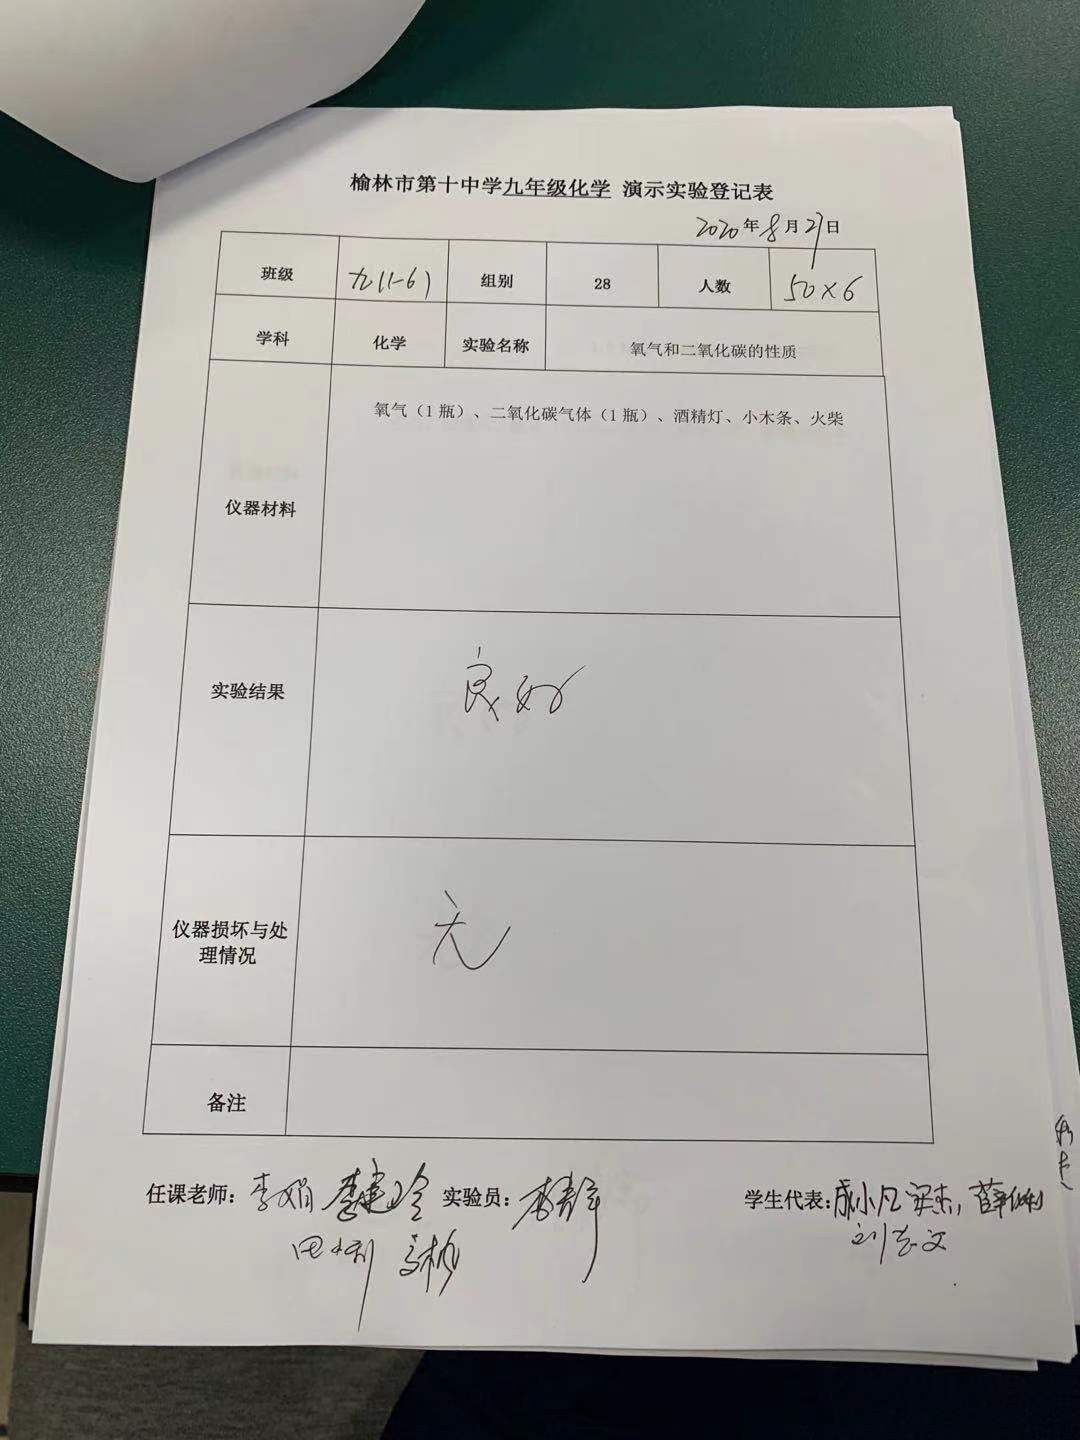 榆林市第十中学九年级化学 演示实验登记表
2020年8月27日
班级 九(1-6) 组别 28 人数 50×6
学科 化学 实验名称 氧气和二氧化碳的性质
仪器材料 氧气（1瓶）、二氧化碳气体（1瓶）、酒精灯、小木条、火柴
实验结果 良好
仪器损坏与处
理情况
无
备注
任课老师： 李娟 实验员： 学生代表：
刘志文